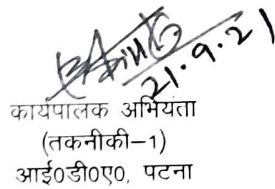 21.9.21
कार्यपालक अभियंता
(तकनीकी-1)
आई0डी0ए0, पटना